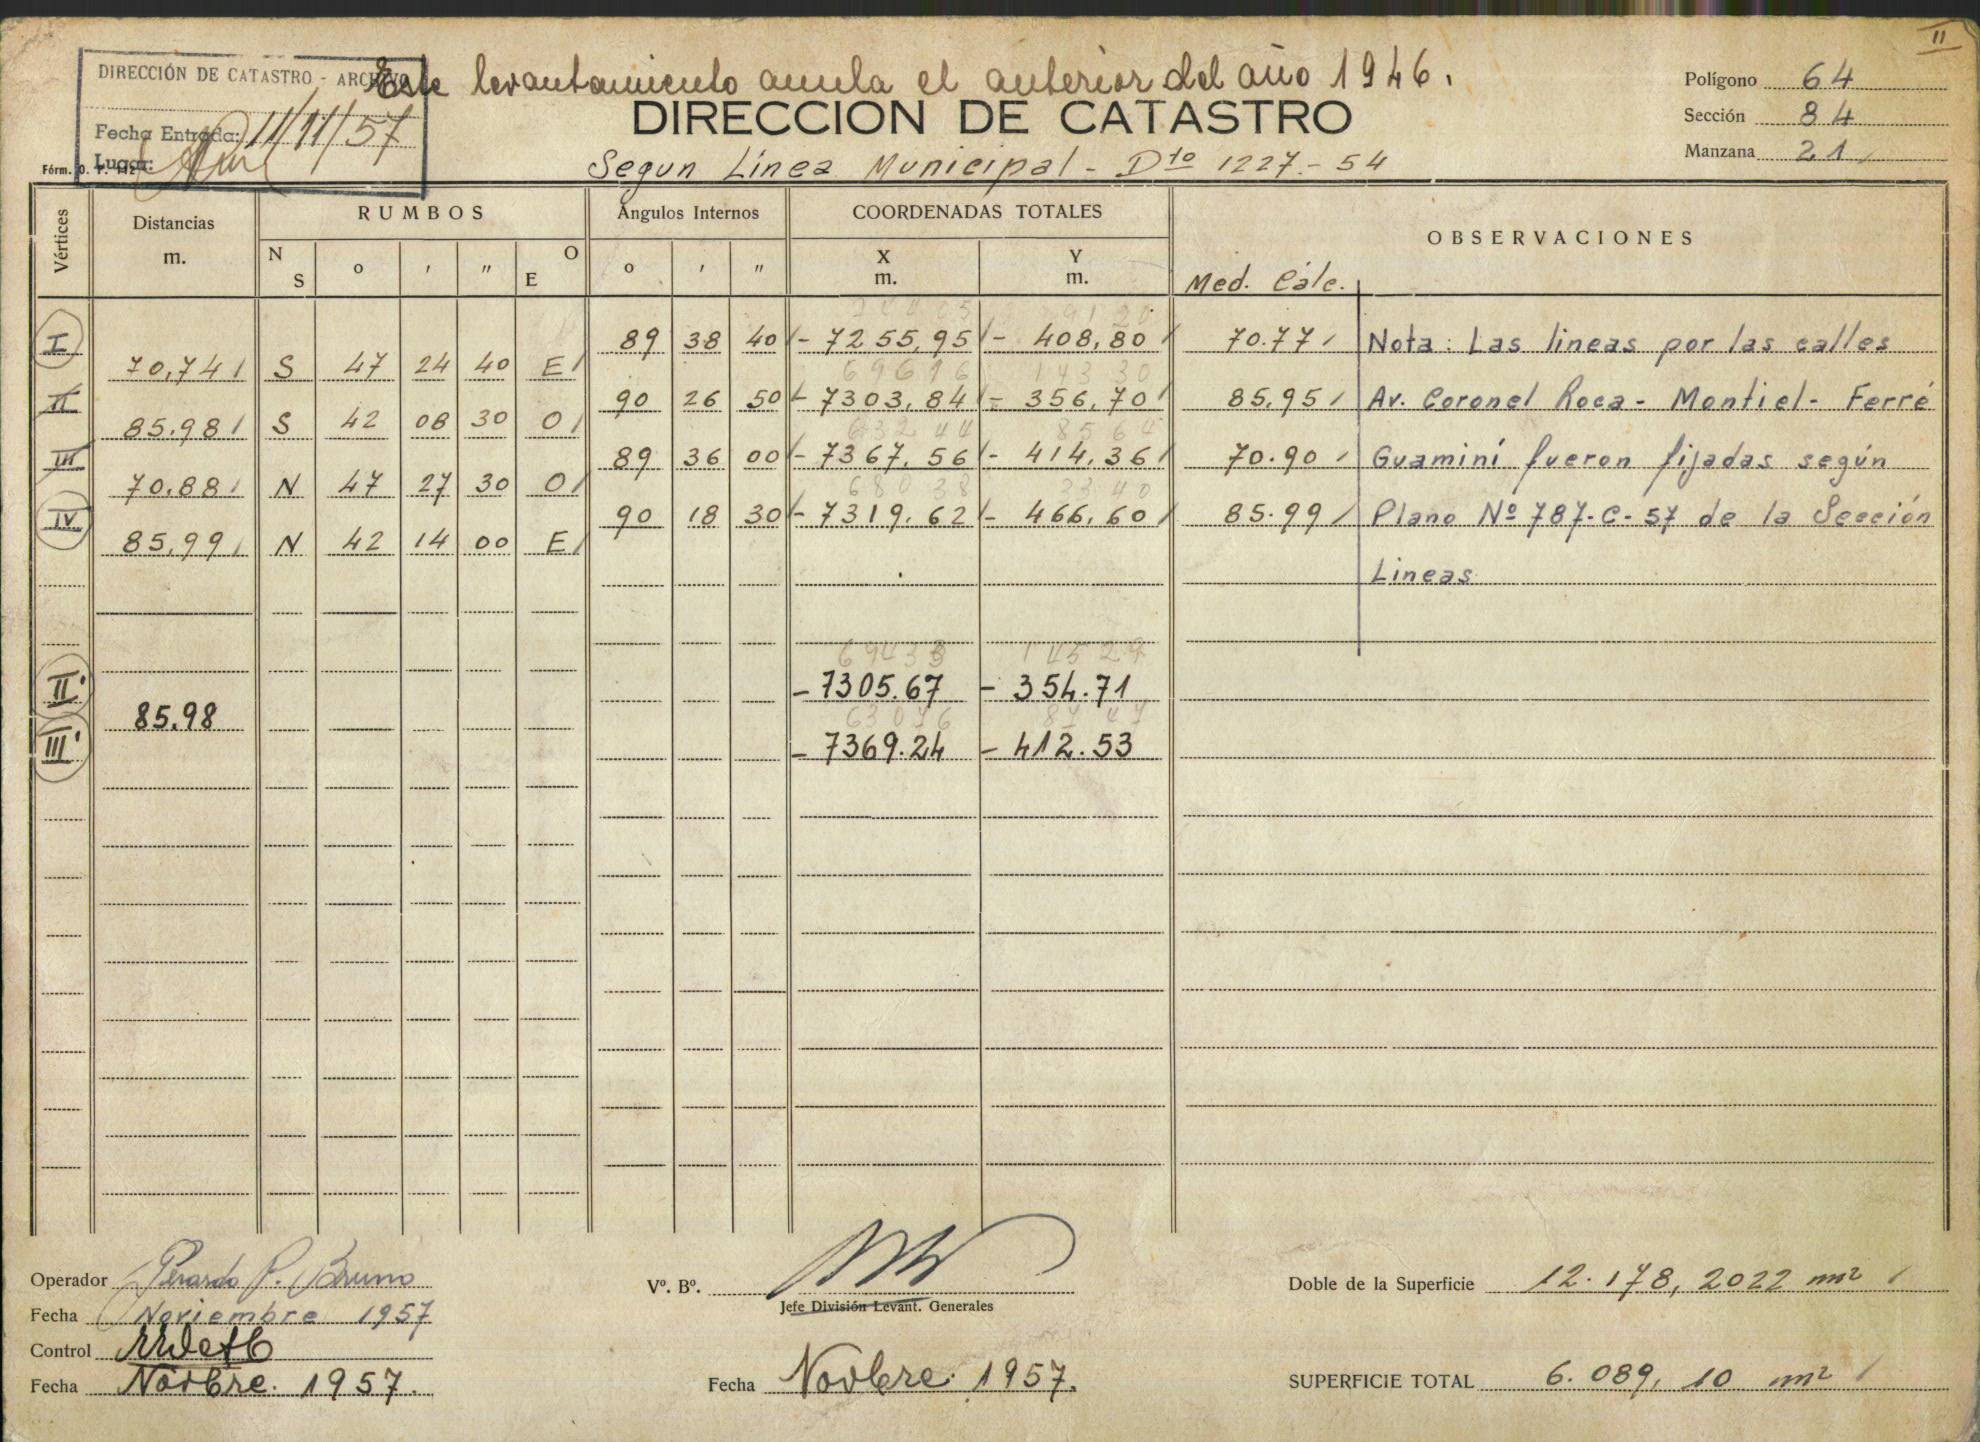 II
DIRECCIÓN DE CATASTRO - ARCHIVO
Este levantamiento anula el anterior del año 1946.
Polígono 64
DIRECCION DE CATASTRO
Sección 84
Fecha Entrada: 11/11/57
Lugar:
Manzana 21
Fórm. O. P. 112
Segun Línea Municipal - Dto 1227.- 54
Vértices
Distancias m.
RUMBOS
Angulos Internos
COORDENADAS TOTALES
OBSERVACIONES
N S ° ' " E O
° ' "
X m.
Y m.
Med. Cálc.
I 89 38 40 - 7255,95 - 408,80 70.77 Nota: Las lineas por las calles
70,74 S 47 24 40 E
69616 14330
II 90 26 50 - 7303,84 - 356,70 85.95 Av. Coronel Roca - Montiel - Ferré
85.98 S 42 08 30 O
63244 8564
III 89 36 00 - 7367.56 - 414,36 70.90 Guaminí fueron fijadas según
70.88 N 47 27 30 O
68038 3340
IV 90 18 30 - 7319.62 - 466,60 85.99 Plano Nº 787-C-57 de la Sección
85.99 N 42 14 00 E
Lineas
69433 14529
II' - 7305.67 - 354.71
85.98
63076 8747
III' - 7369.24 - 412.53
Operador P. Bruno
Fecha Noviembre 1957
Control
Fecha Novbre. 1957.
Vº. Bº.
Jefe División Levant. Generales
Fecha Novbre. 1957.
Doble de la Superficie 12.178,2022 m2
SUPERFICIE TOTAL 6.089,10 m2